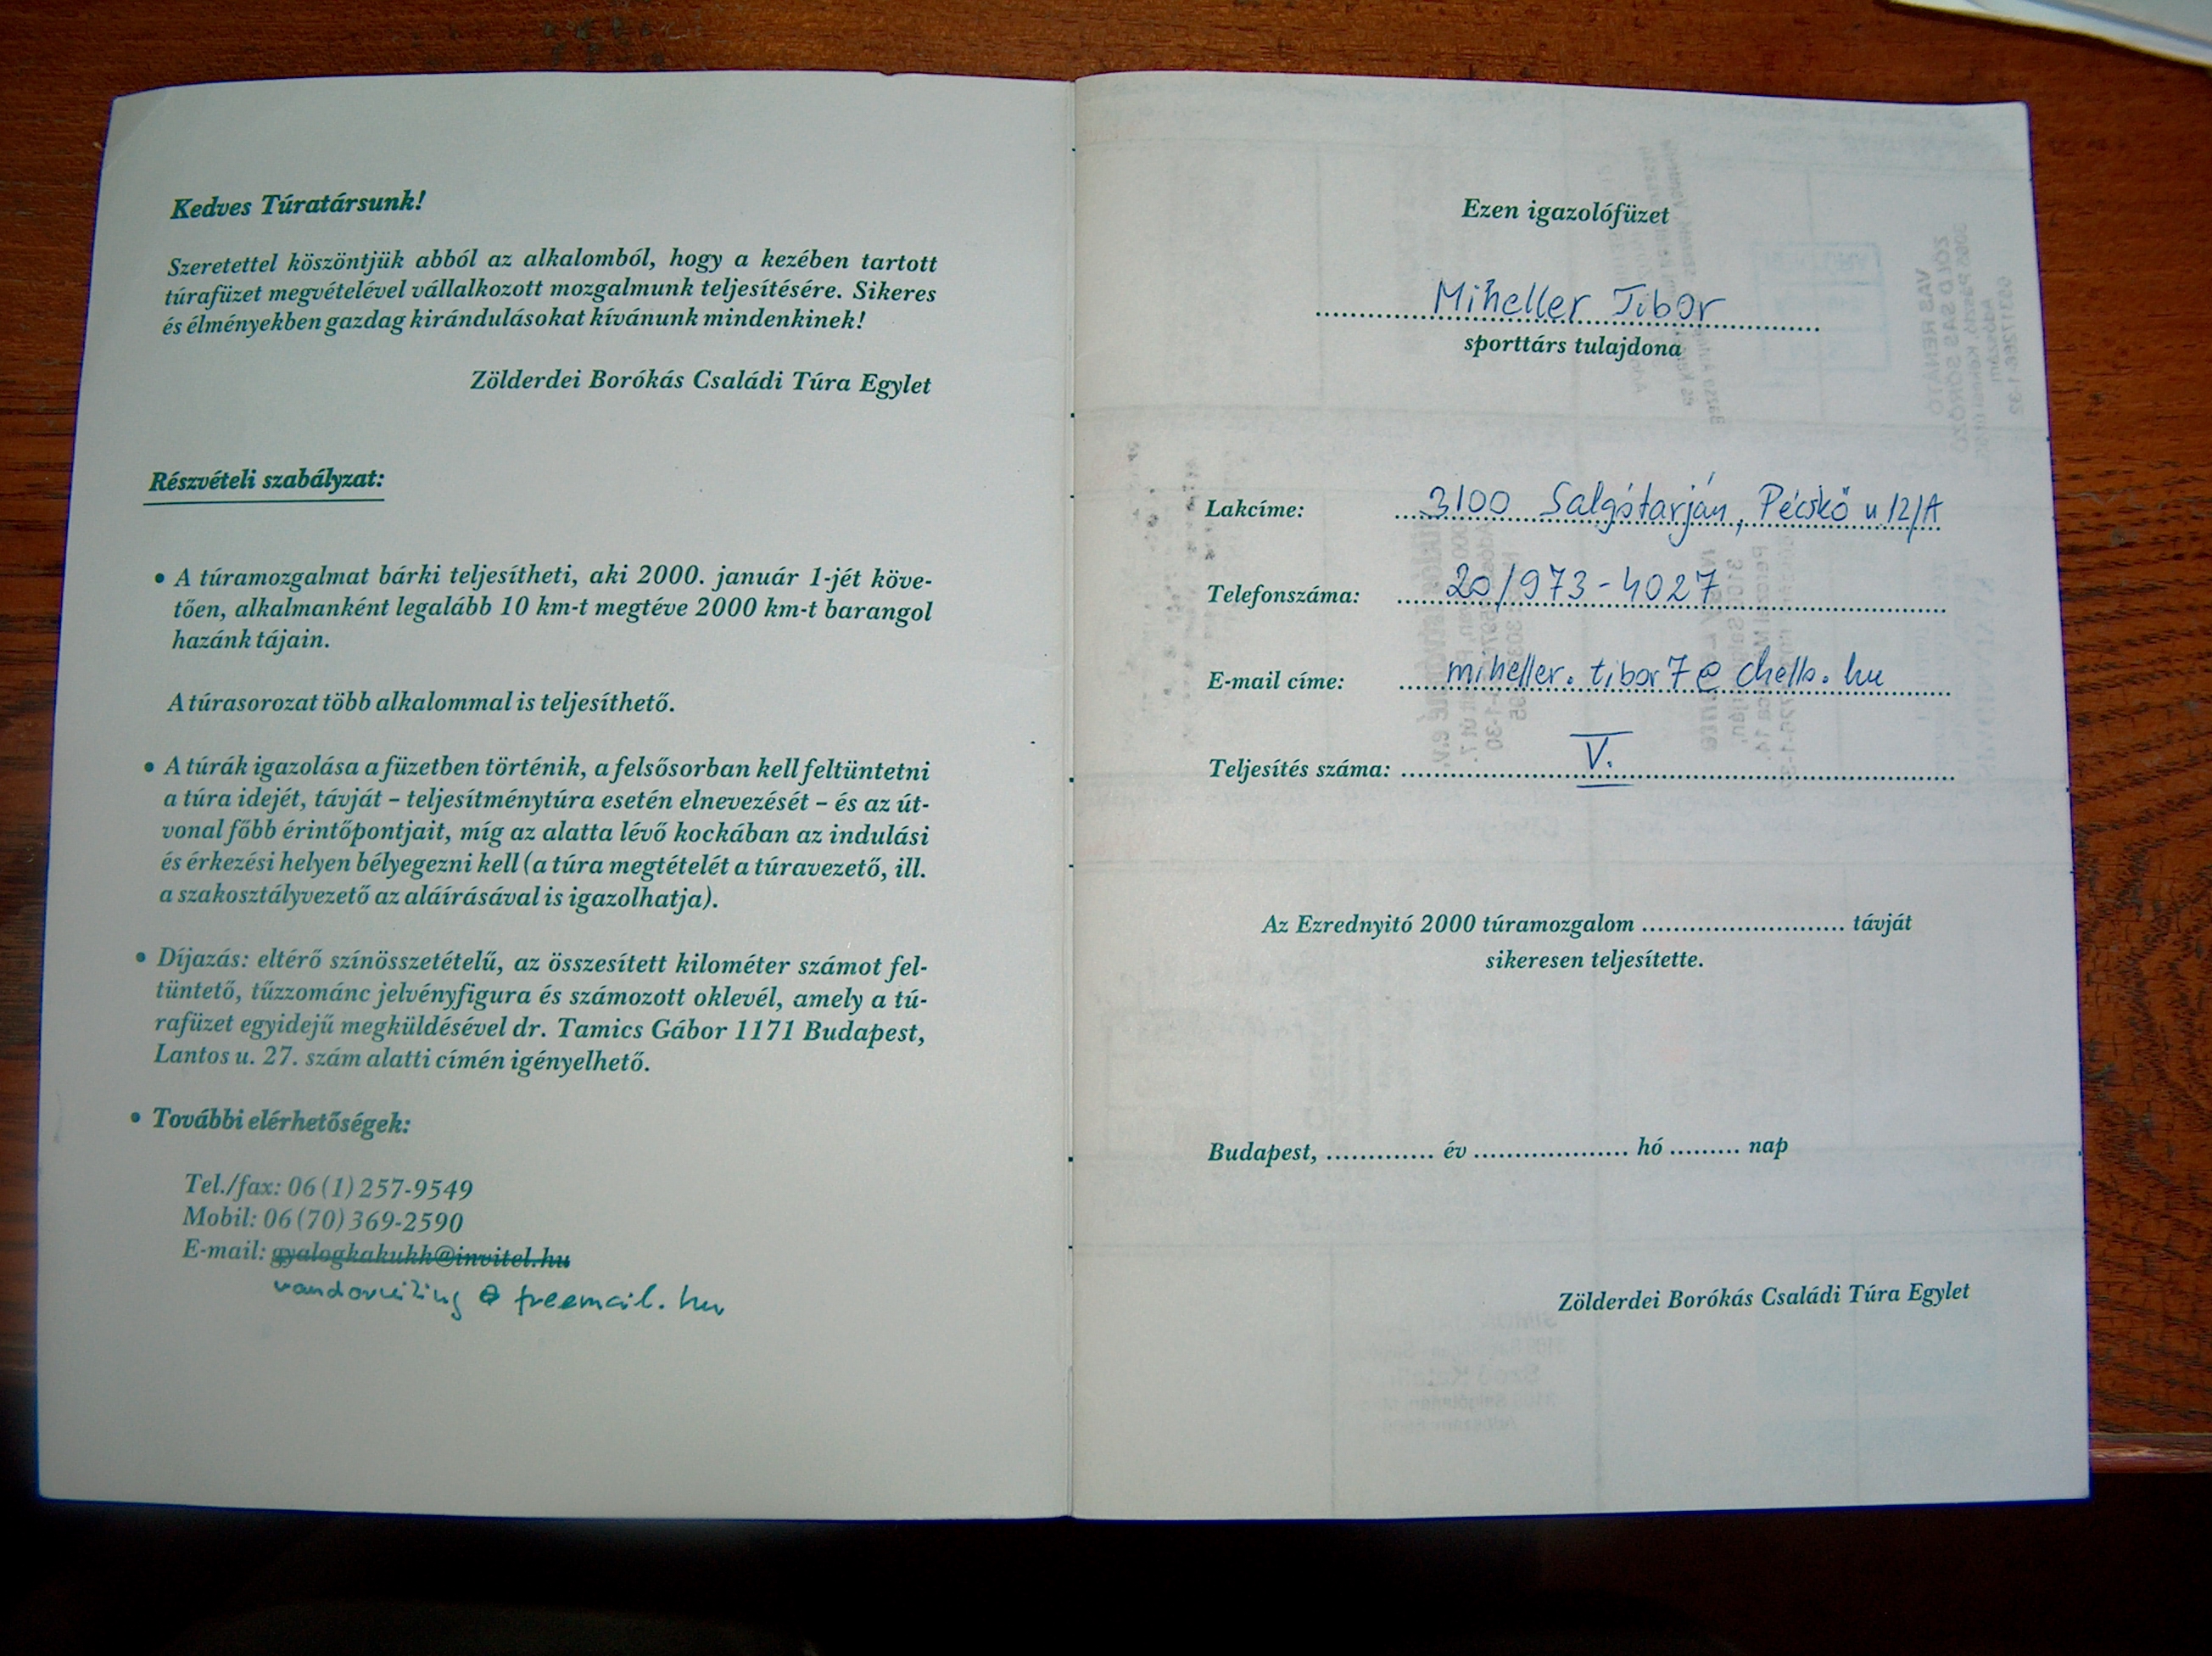 Kedves Túratársunk!
Szeretettel köszöntjük abból az alkalomból, hogy a kezében tartott
túrafüzet megvételével vállalkozott mozgalmunk teljesítésére. Sikeres
és élményekben gazdag kirándulásokat kívánunk mindenkinek!
Zölderdei Borókás Családi Túra Egylet
Részvételi szabályzat:
• A túramozgalmat bárki teljesítheti, aki 2000. január 1-jét köve-
tően, alkalmanként legalább 10 km-t megtéve 2000 km-t barangol
hazánk tájain.
A túrasorozat több alkalommal is teljesíthető.
• A túrák igazolása a füzetben történik, a felsősorban kell feltüntetni
a túra idejét, távját – teljesítménytúra esetén elnevezését – és az út-
vonal főbb érintőpontjait, míg az alatta lévő kockában az indulási
és érkezési helyen bélyegezni kell (a túra megtételét a túravezető, ill.
a szakosztályvezető az aláírásával is igazolhatja).
• Díjazás: eltérő színösszetételű, az összesített kilométer számot fel-
tüntető, tűzzománc jelvényfigura és számozott oklevél, amely a tú-
rafüzet egyidejű megküldésével dr. Tamics Gábor 1171 Budapest,
Lantos u. 27. szám alatti címén igényelhető.
• További elérhetőségek:
Tel./fax: 06 (1) 257-9549
Mobil: 06 (70) 369-2590
E-mail: gyalogkakukk@invitel.hu
@ freemail.hu
Ezen igazolófüzet
Miheller Tibor
sporttárs tulajdona
Lakcíme: 3100 Salgótarján, Pécskő u 12/A
Telefonszáma: 20/973-4027
E-mail címe: miheller.tibor7@chello.hu
Teljesítés száma: V.
Az Ezrednyitó 2000 túramozgalom .......................... távját
sikeresen teljesítette.
Budapest, .............. év .................... hó ......... nap
Zölderdei Borókás Családi Túra Egylet